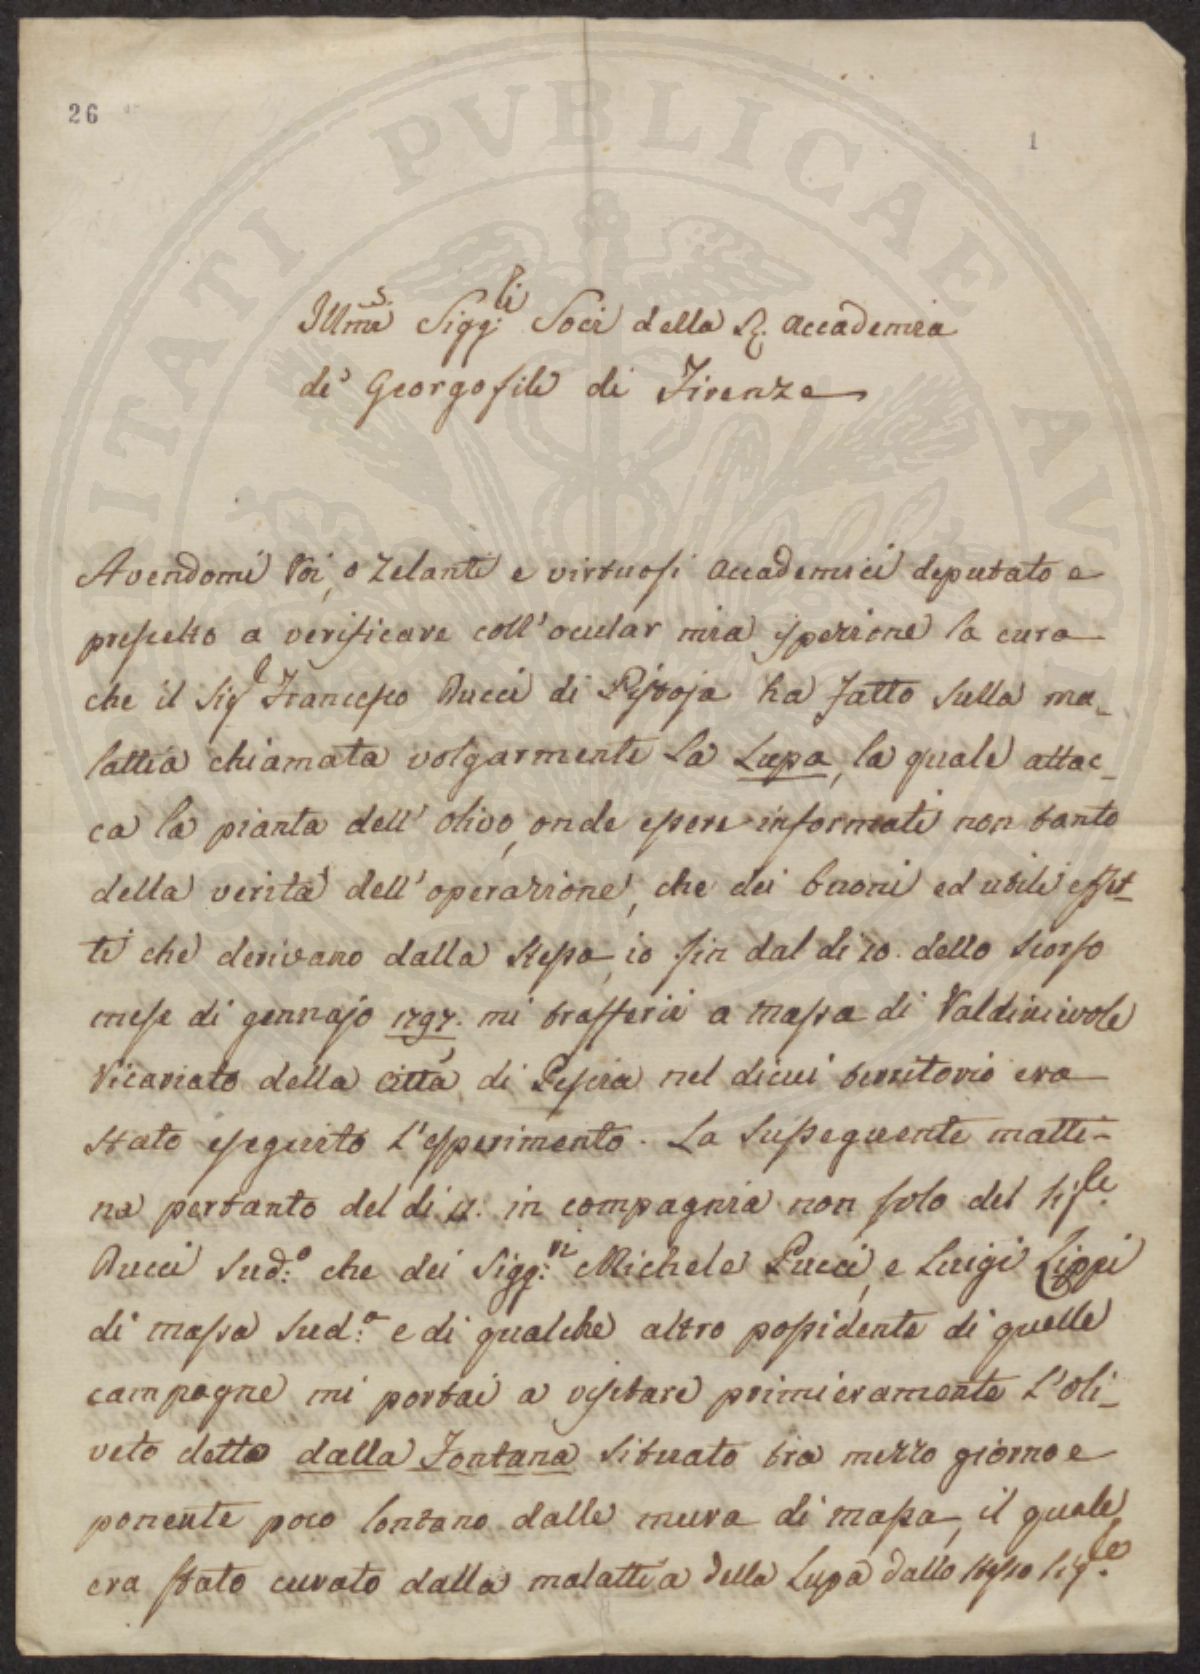 26
1
Illmi Sigg:li Soci della R. Accademia
de' Georgofili di Firenze
Avendomi Voi, o Zelanti e virtuosi Accademici deputato e
prescelto a verificare coll'ocular mia ispezione la cura
che il Sige Francesco Bucci di Pistoja ha fatto sulla ma-
lattia chiamata volgarmente La Lupa, la quale attac-
ca la pianta dell'olivo, onde essere informati non tanto
della verità dell'operazione, che dei buoni ed utili effet-
ti che derivano dalla stessa, io fin dal di 10. dello scorso
mese di gennajo 1797. mi trasferii a Massa di Valdinievole
Vicariato della Città di Pescia nel dicui territorio era
stato eseguito l'esperimento. La susseguente matti-
na pertanto del di 11. in compagnia non solo del Sige.
Bucci sud:o che dei Sigg:ri Michele Pucci, e Luigi Lippi
di Massa sud:a e di qualche altro possidente di quelle
campagne mi portai a visitare primieramente l'oli-
veto detto dalla Fontana situato tra mezzo giorno e
ponente poco lontano dalle mura di Massa, il quale
era stato curato dalla malattia della Lupa dallo stesso Sige.
PVBLICAE